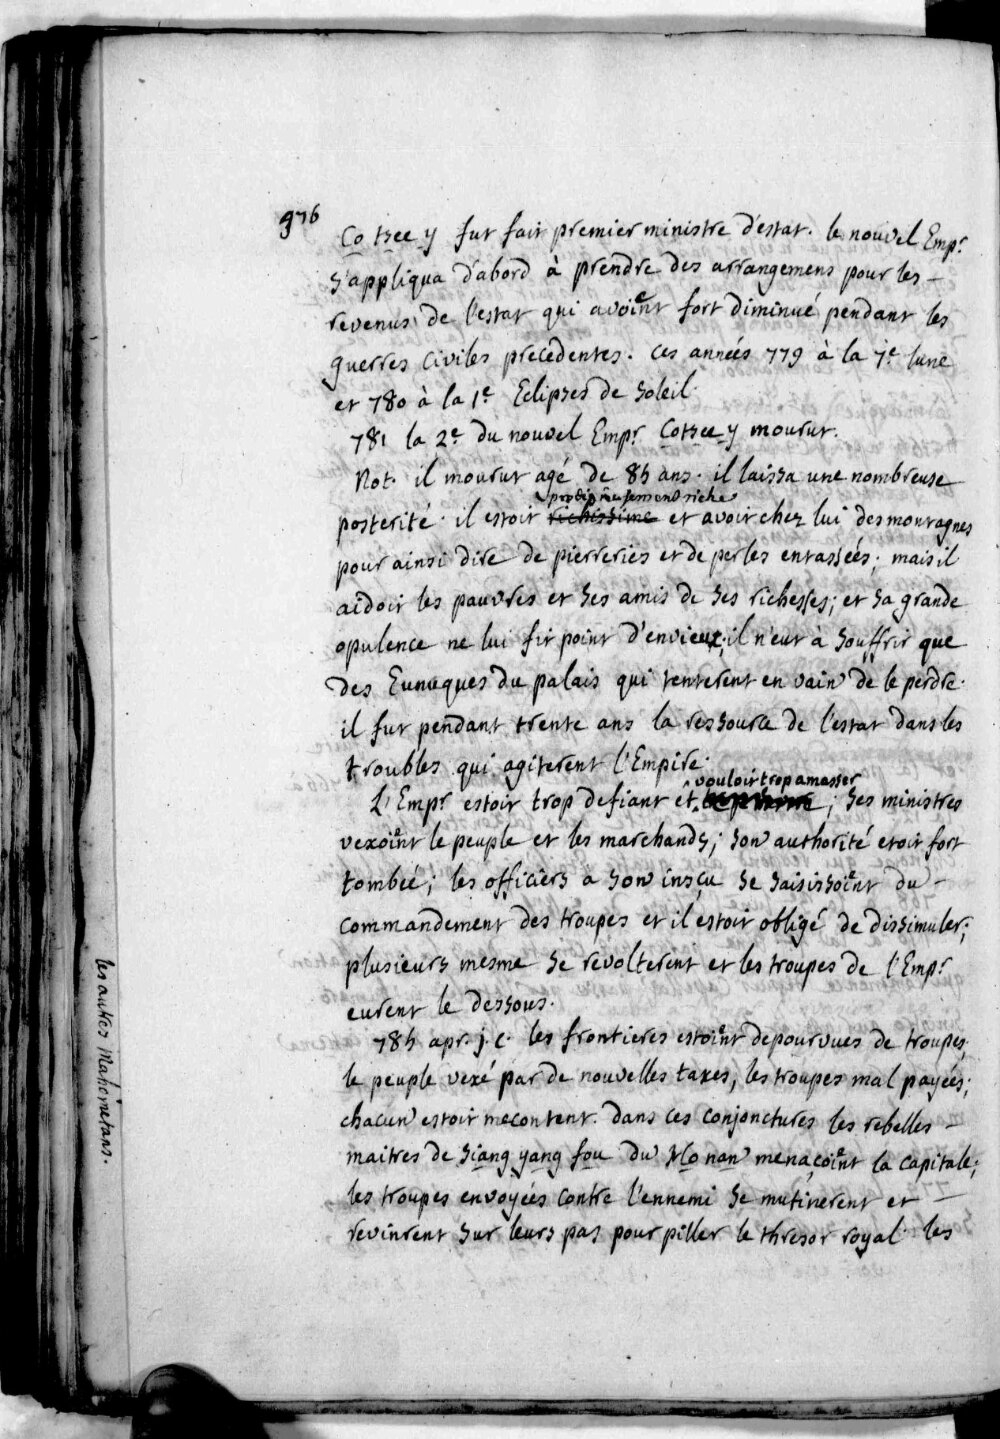 976
Co tsee y fut fait premier ministre d'estat. le nouvel Emp.r
s'appliqua d'abord à prendre des arrangemens pour les -
revenus de l'estat qui avoient fort diminué pendant les
guerres civiles precedentes. ces années 779 à la 7.e lune
et 780 à la 1.e Eclipses de soleil.
781 la 2.e du nouvel Emp.r Cotsee y mourut.
Not. il mourut agé de 85 ans. il laissa une nombreuse
prodigieusement riche
posterité. il estoit richissime et avoit chez lui des montagnes
pour ainsi dire de pierreries et de perles entassées; mais il
aidoit les pauvres et ses amis de ses richesses; et sa grande
opulence ne lui fit point d'envieux; il n'eut à souffrir que
des Eunuques du palais qui tenterent en vain de le perdre.
il fut pendant trente ans la ressource de l'estat dans les
troubles qui agiterent l'Empire.
vouloit trop amasser
L'Emp.r estoit trop defiant et ; ses ministres
vexoient le peuple et les marchands; son authorité etoit fort
tombée; les officiers à son insçu se saisissoient du -
commandement des troupes et il estoit obligé de dissimuler;
plusieurs mesme se revolterent et les troupes de l'Emp.r
eurent le dessous.
785 apr. j. c. les frontieres estoient depourvues de troupes,
le peuple vexé par de nouvelles taxes, les troupes mal payées;
chacun estoit mecontent. dans ces conjonctures les rebelles -
maitres de Siang yang fou du Ho nan menaçoient la capitale;
les troupes envoyées contre l'ennemi se mutinerent et -
revinrent sur leurs pas pour piller le thresor royal. les
les autres Mahometans.